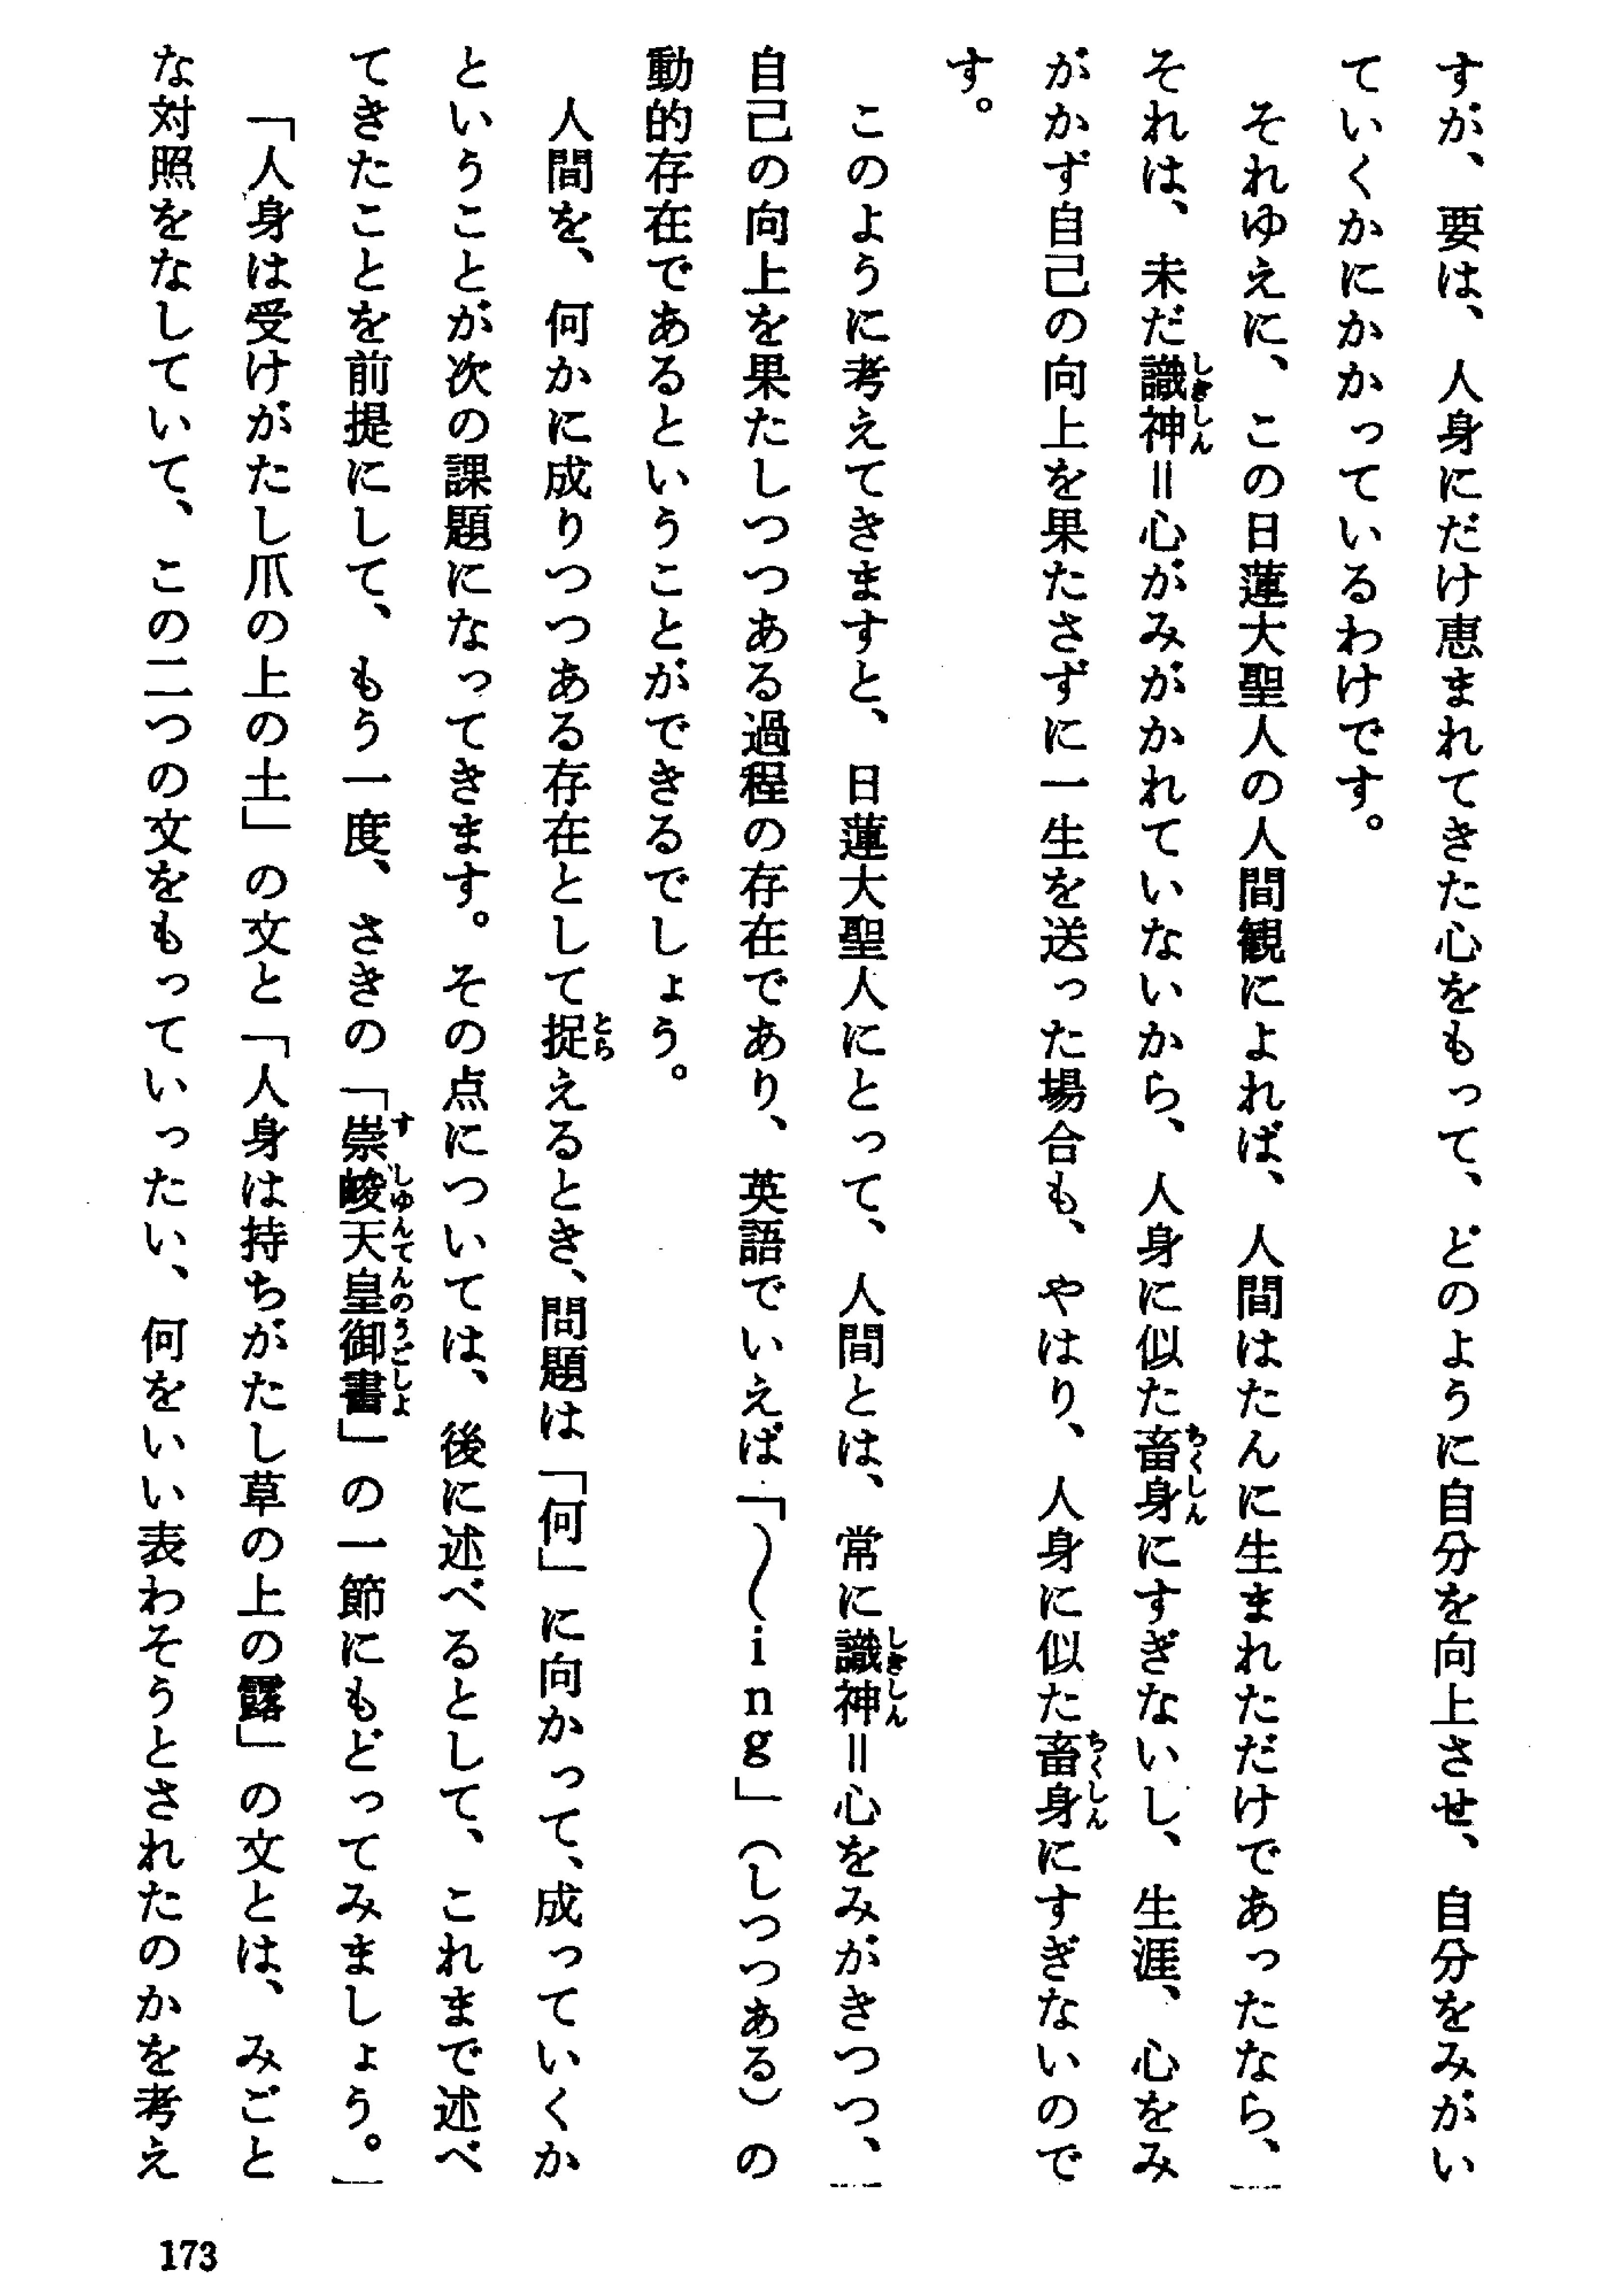 すが、要は、人身にだけ恵まれてきた心をもって、どのように自分を向上させ、自分をみがい
ていくかにかかっているわけです。
それゆえに、この日蓮大聖人の人間観によれば、人間はたんに生まれただけであったなら、
それは、未だ識神＝心がみがかれていないから、人身に似た畜身にすぎないし、生涯、心をみ
がかず自己の向上を果たさずに一生を送った場合も、やはり、人身に似た畜身にすぎないので
す。
このように考えてきますと、日蓮大聖人にとって、人間とは、常に識神＝心をみがきつつ、
自己の向上を果たしつつある過程の存在であり、英語でいえば「〜ing」（しつつある）の
動的存在であるということができるでしょう。
人間を、何かに成りつつある存在として捉えるとき、問題は「何」に向かって、成っていくか
ということが次の課題になってきます。その点については、後に述べるとして、これまで述べ
てきたことを前提にして、もう一度、さきの「崇峻天皇御書」の一節にもどってみましょう。
「人身は受けがたし爪の上の土」の文と「人身は持ちがたし草の上の露」の文とは、みごと
な対照をなしていて、この二つの文をもっていったい、何をいい表わそうとされたのかを考え
173